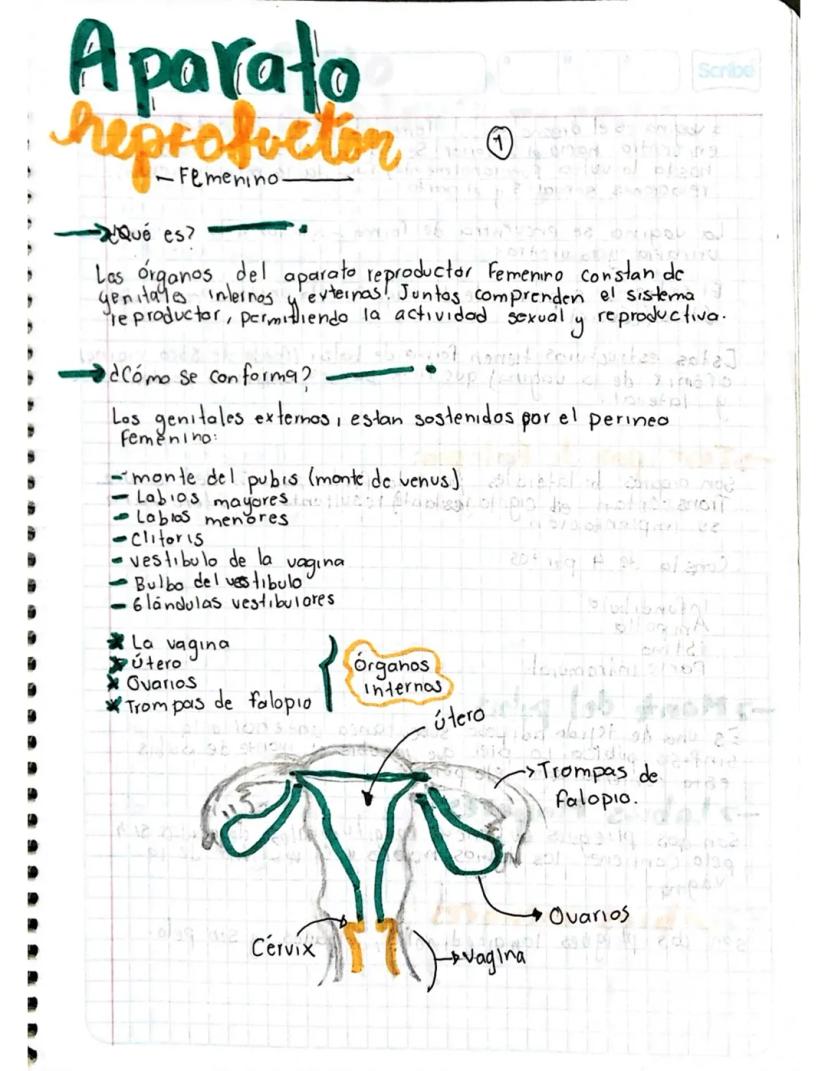 Aparato
reproductor
Femenino
1
¿Qué es?
Los órganos del aparato reproductor Femenino constan de
genitales internos y externos. Juntos comprenden el sistema
reproductor, permitiendo la actividad sexual y reproductiva.
¿Cómo se conforma?
Los genitales externos, estan sostenidos por el perineo
femenino:
- monte del pubis (monte de venus)
- Labios mayores
- Labios menores
- Clitoris
- vestibulo de la vagina
- Bulbo del vestibulo
- Glándulas vestibulores
La vagina
Útero
Ovarios
Trompas de falopio
Órganos
internos
Útero
Trompas de
falopio.
Ovarios
Cérvix
vagina
Scribe